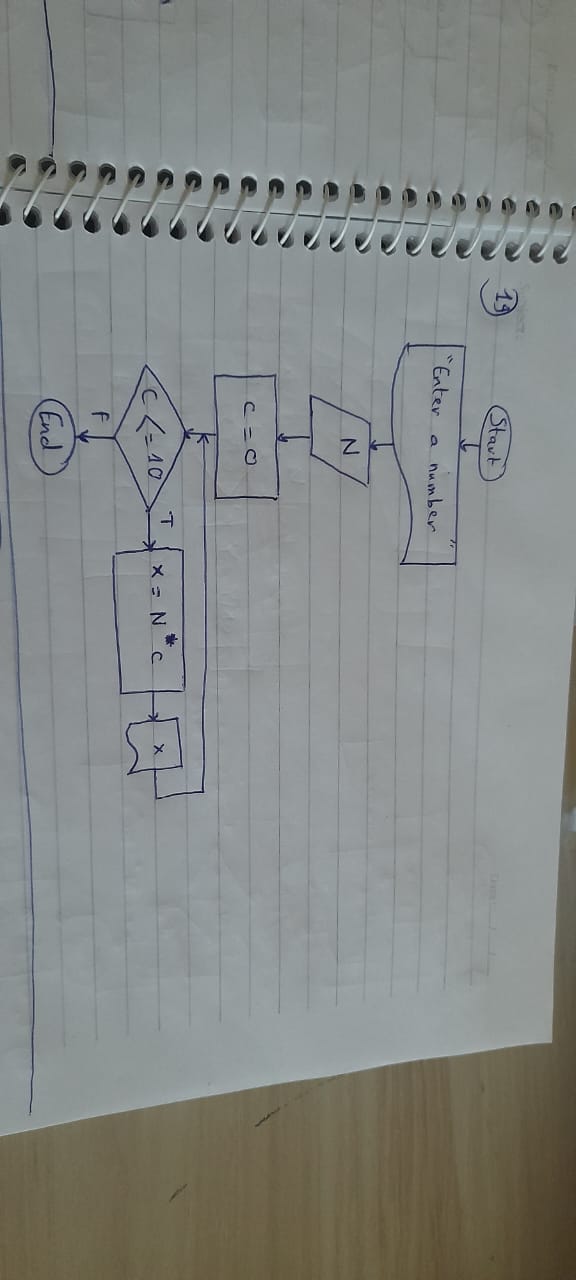 19
Start
"Enter a number"
N
C = 0
C <= 10
T
X = N * C
X
F
End